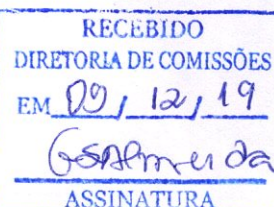 RECEBIDO
DIRETORIA DE COMISSÕES
EM 09 / 12 / 19
ASSINATURA